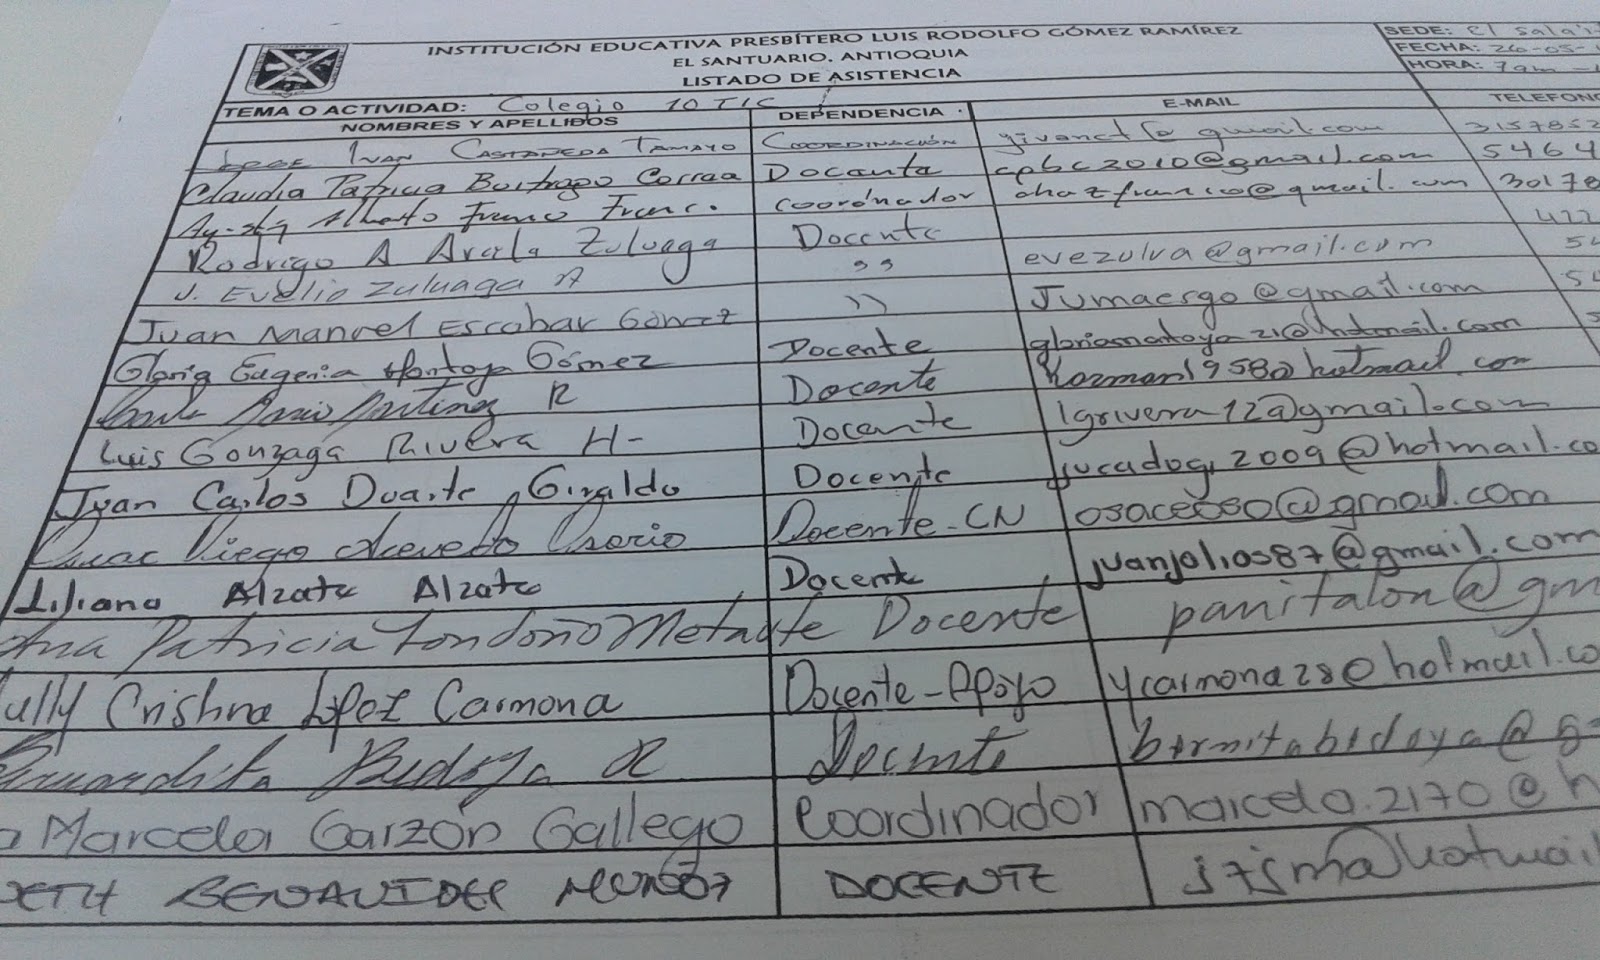 INSTITUCIÓN EDUCATIVA PRESBÍTERO LUIS RODOLFO GÓMEZ RAMÍREZ
EL SANTUARIO. ANTIOQUIA
LISTADO DE ASISTENCIA
SEDE: El
FECHA: 26-05-
HORA: 7am -
TEMA O ACTIVIDAD: Colegio 10 TIC
NOMBRES Y APELLIDOS DEPENDENCIA E-MAIL TELEFONO
IVAN CASTAÑEDA TAMAYO COORDINACIÓN givanct@gmail.com 3157852
Claudia Patricia Buitrago Correa Docente cpbc2010@gmail.com 5464
Alberto Franco Franco Coordinador ahazfranco@gmail.com 30178
Rodrigo A Arcila Zuluaga Docente 422
J. Evelio Zuluaga A ,, evezulva@gmail.com 54
Juan Manuel Escobar Gómez )) Jumaesgo@gmail.com 54
Gloria Eugenia Montoya Gómez Docente gloriamontoya21@hotmail.com 5
Martinez R Docente 1958@hotmail.com
Luis Gonzaga Rivera H- Docente lgrivera12@gmail.com
Juan Carlos Duarte Giraldo Docente jucadogi2009@hotmail.co
Oscar Diego Acevedo Osorio Docente-CN @gmail.com
Liliana Alzate Alzate Docente juanjolios87@gmail.com
Ana Patricia Londoño Metaute Docente panitalon@gm
ully Cristina López Carmona Docente-Apoyo ycarmona28@hotmail.co
Bedoya R Docente bernitabedoya@g
a Marcela Garzón Gallego Coordinador marcela.2170@h
BENAVIDES MUÑOZ DOCENTE @hotmail